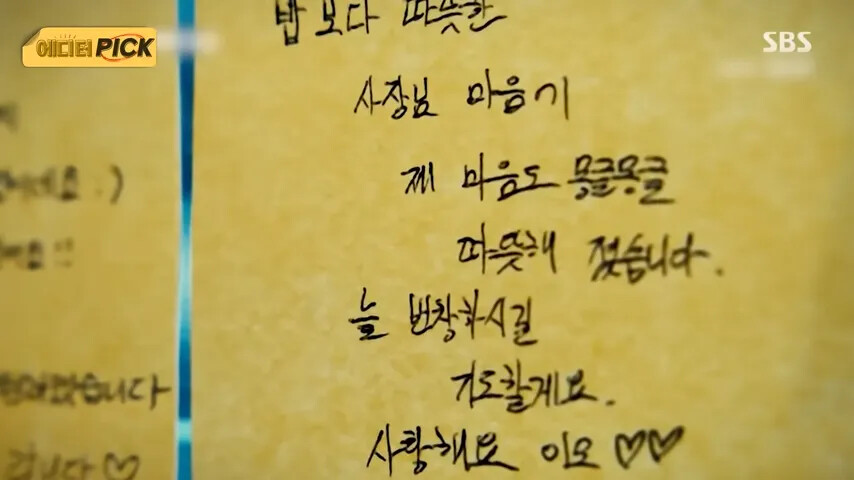 에디터PICK
SBS
밥보다 따뜻한
사장님 마음이
제 마음도 몽글몽글
따뜻해 졌습니다.
늘 번창하시길
기도할게요.
사랑해요 이모 ♡♡